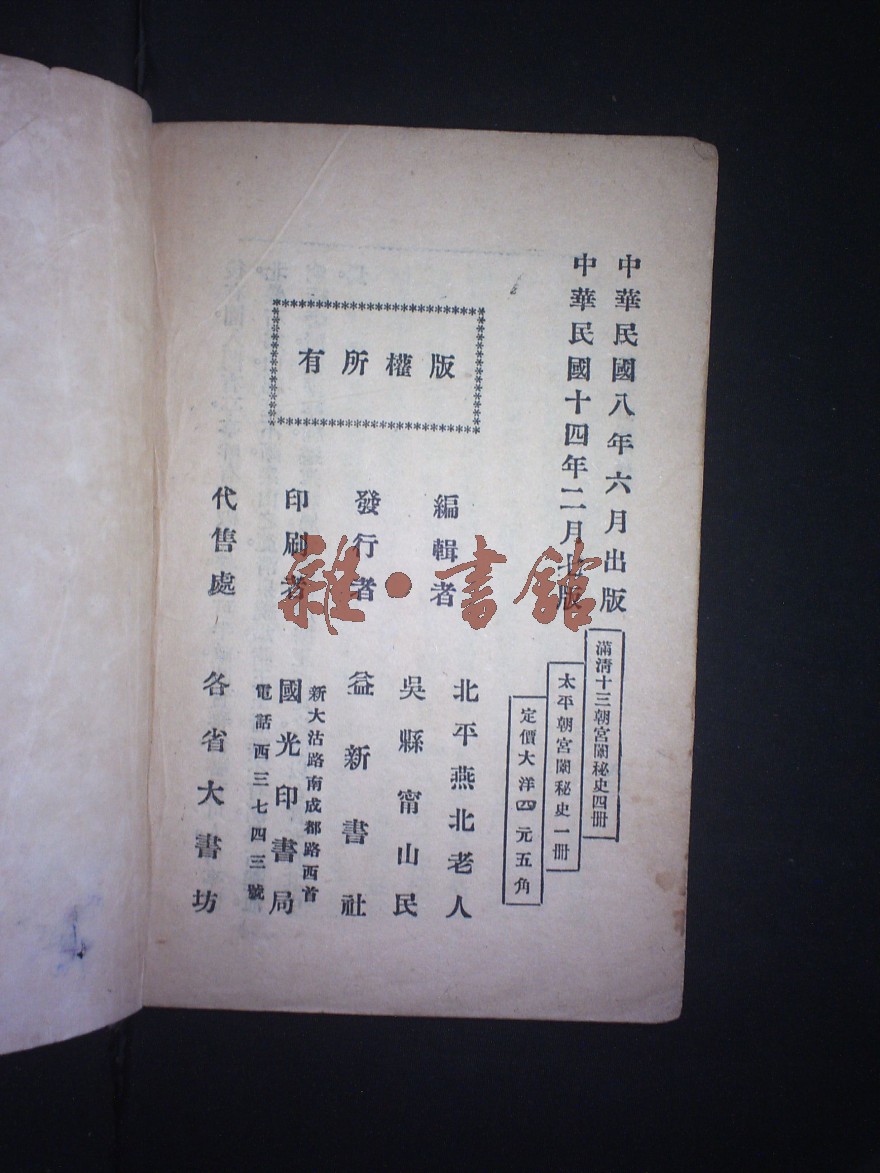 中華民國八年六月出版
中華民國十四年二月七版
滿清十三朝宮闈秘史四冊
太平朝宮闈秘史一冊
定價大洋四元五角
版權所有
編輯者
北平燕北老人
吳縣甯山民
發行者
益新書社
印刷者
新大沽路南成都路西首
國光印書局
電話西三七四三號
代售處
各省大書坊
雜·書館